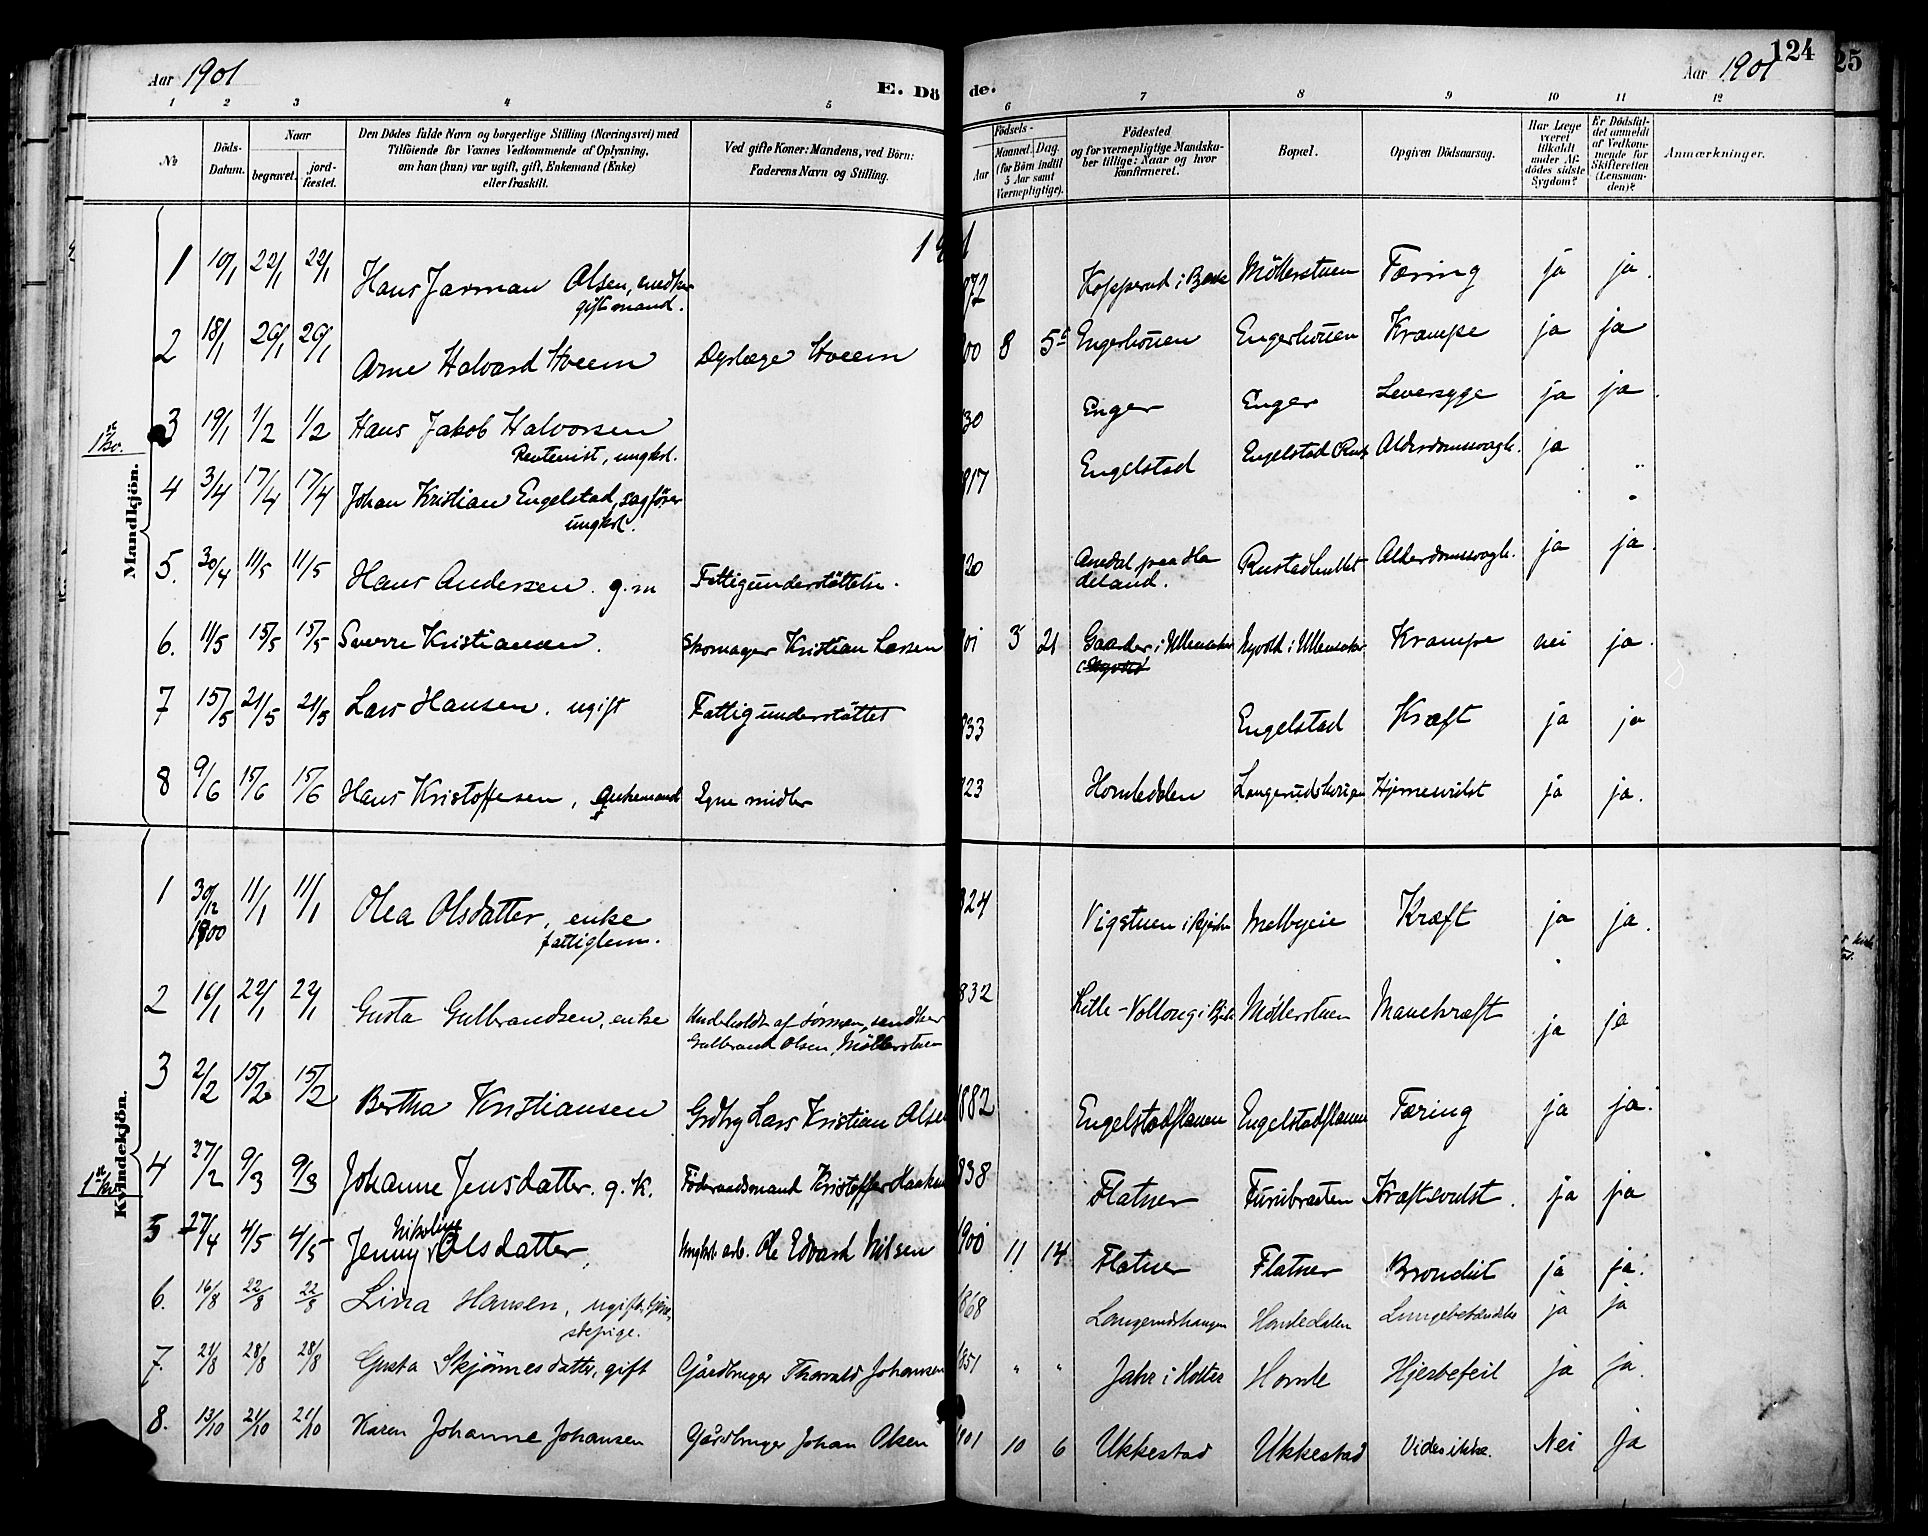 Aar 1901
E. Dö
de.
Aar 1901
124
25
1 2 3 4 5 6 7 8 9 10 11 12
No
Döds-Datum.
Naar
begravet.
jord-fæstet.
Den Dödes fulde Navn og borgerlige Stilling (Næringsvei) med
Tilföiende for Voxnes Vedkommende af Oplysning,
om han (hun) var ugift, gift, Enkemand (Enke)
eller fraskilt.
Ved gifte Koner: Mandens, ved Börn:
Faderens Navn og Stilling.
Födsels-
Aar
Maaned. Dag.
(for Börn indtil
5 Aar samt
Værnepligtige).
Födested
og for værnepligtige Mandska-
ber tillige: Naar og hvor
konfirmeret.
Bopæl.
Opgiven Dödsaarsag.
Har Læge
været
tilkaldt
under Af-
dödes sidste
Sygdom?
Er Dödsfal-
det anmeldt
af Vedkom-
mende for
Skifteretten
(Lensman-
den)?
Anmærkninger.
Mandkjön.
1 10/1 22/1 22/1 Hans Jarman Olsen, 872 Kopperud i Møllerstuen Tæring ja ja.
gift mand.
2 18/1 29/1 29/1 Arne Halvard Hveem Dyrlæge Hveem 00 8 5 Engerhöuen Engerhöuen Krampe ja ja
3 19/1 1/2 1/2 Hans Jakob Halvorsen 30 Enger Enger Leversyge ja ja.
Rentenist, ungkl.
4 3/4 17/4 17/4 Johan Kristian Engelstad, sagförer 17 Engelstad Engelstad Alderdomssvagh. ja "
ungkl.
5. 30/4 11/5 11/5 Hans Andersen. g.m Fattigunderstöttelse. 20 paa Ha Alderdomssvagh. ja ja.
deland.
6. 11/5 15/5 15/5 Sverre Kristiansen. Skomager Kristian Larsen 01 3 21 Gaarder i Ullensaker Nyvold i Ullensaker Krampe nei ja.
7 15/5 21/5 21/5 Lars Hansen. ugift Fattigunderstöttet 833 Engelstad Kræft ja ja
8 9/6 15/6 15/6 Hans Kristoffesen, enkemand Egne midler 823 Homledalen Hjernesvulst ja ja.
Kvindekjön.
1 30/12 11/1 11/1 Olea Olsdatter, enke 824 Vigstuen i Melbyeie Kræft ja ja.
1900 fattiglem.
2 16/1 22/1 22/1 Gusta Gulbrandsen, enke Underholdt af sønnen, 832 Lille-Vollaug i Møllerstuen Mavekræft ja ja
Gulbrand Olsen, Møllerstuen
3 2/2 15/2 15/2 Bertha Kristiansen Grdbrg Lars Kristian Olsen 1882 Engelstadflauen Engelstadflauen Tæring ja ja.
4 27/2 9/3 9/3 Johanne Jensdatter. g. K. Föderaadsmand Kristoffer 838 Flatner Furubraaten Kræftsvulst. ja ja
5 27/4 4/5 4/5 Jenny Nikoline Olsdatter, Ungkl. arb. Ole Edvard Nilsen 1900 11 14 Flatner Flatner Bronchit ja ja.
6. 16/8 22/8 22/8 Lina Hansen, ugift, 1868 Langerudshaugen Homledalen Lungebetændelse ja ja
stepige.
7. 21/8 28/8 28/8 Gusta Skjönnesdatter, gift Gårdbruger Thorvald Johansen 1851 " " Jahr i Holter Homle Hjertefeil ja ja.
8. 13/10 21/10 21/10 Karen Johanne Johansen Gårdbruger Johan Olsen 901 10 6 Ukkestad Ukkestad Vides ikke. Nei Ja